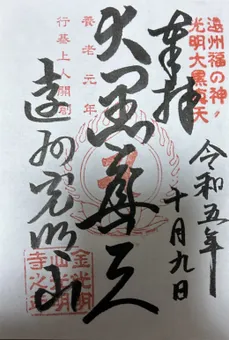 遠州福の神
光明大黒真天
奉拝
令和五年
十月九日
大黒真天
養老元年
行基上人開創
遠州光明山
金光明
山光明
寺之印